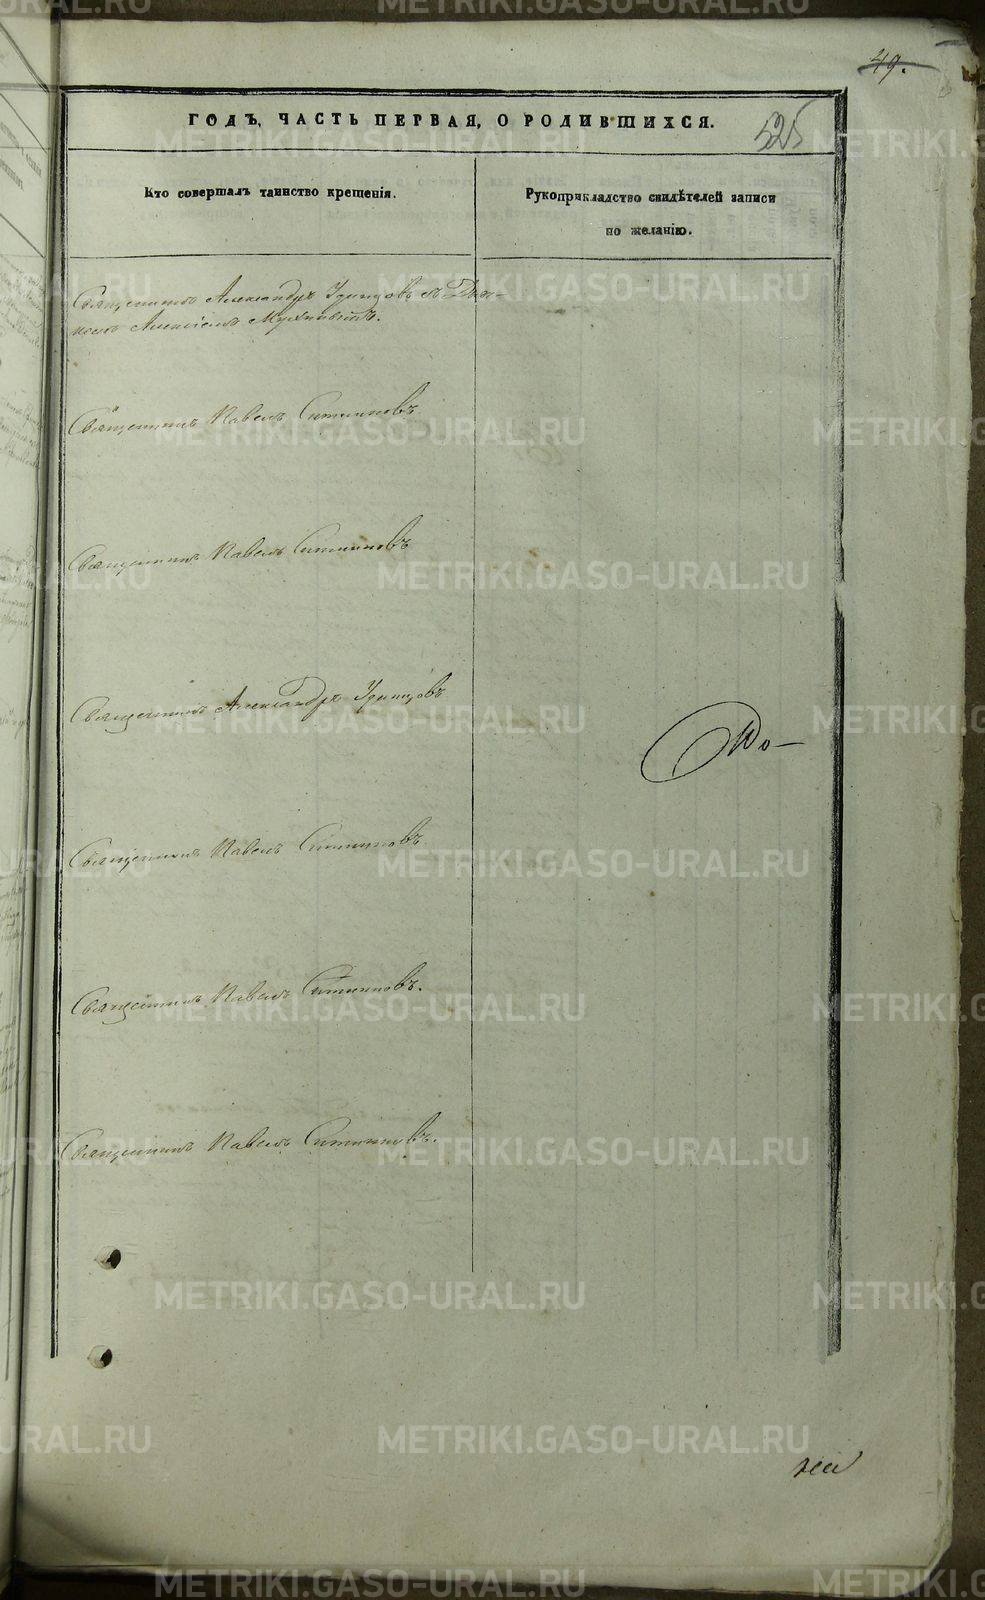 49.
ГОДЪ, ЧАСТЬ ПЕРВАЯ, О РОДИВШИХСЯ.
525
Кто совершалъ таинство крещенія.
Рукоприкладство свидѣтелей записи
по желанію.
Священникъ Александръ Удинцовъ съ Дья-
кономъ Алексіемъ
Священникъ Павелъ Ситниковъ
Священникъ Павелъ Ситниковъ
Священникъ Александръ Удинцовъ
Священникъ Павелъ Ситниковъ
Священникъ Павелъ Ситниковъ.
Священникъ Павелъ Ситниковъ.
METRIKI.GASO-URAL.RU